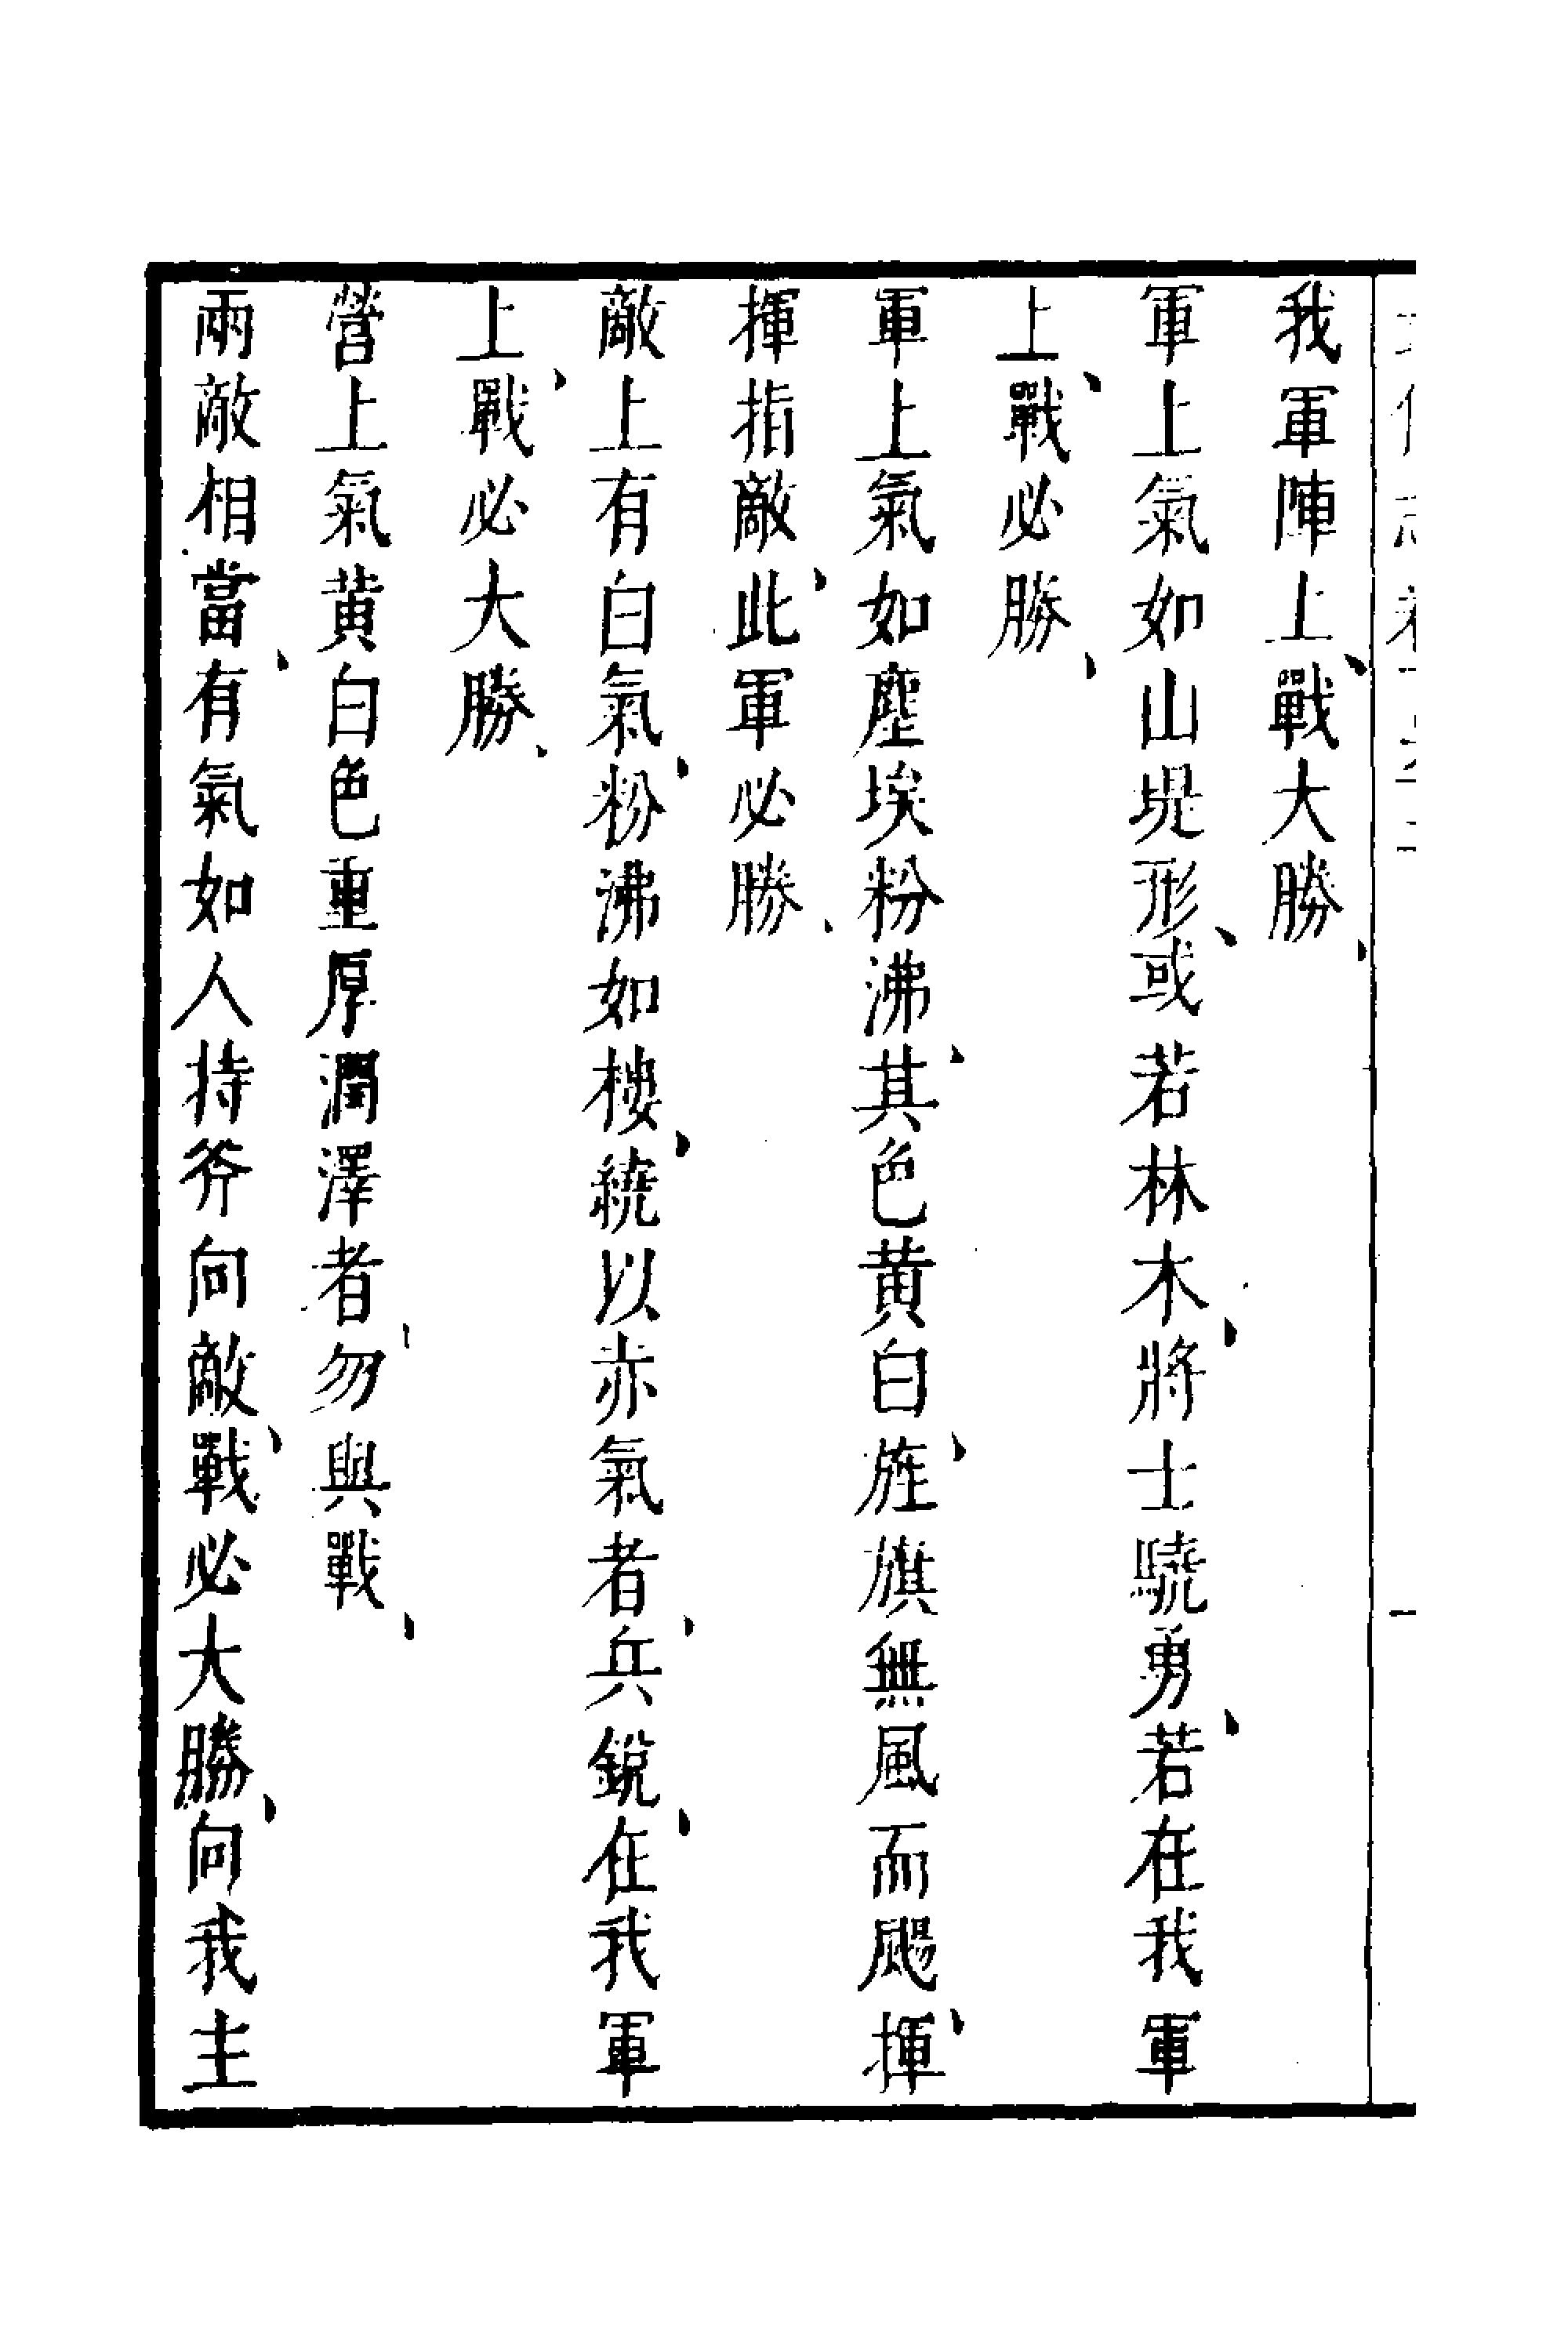 我軍陣上、戰大勝、
軍上氣如山堤形、或若林木、將士驍勇、若在我軍
上、戰必勝、
軍上氣如塵埃粉沸、其色黄白、旌旗無風而颺、揮
揮指敵、此軍必勝、
敵上有白氣、粉沸如樓、繞以赤氣者、兵銳、在我軍
上、戰必大勝、
營上氣黄白色重厚潤澤者、勿與戰、
兩敵相當、有氣如人持斧向敵、戰必大勝、向我主